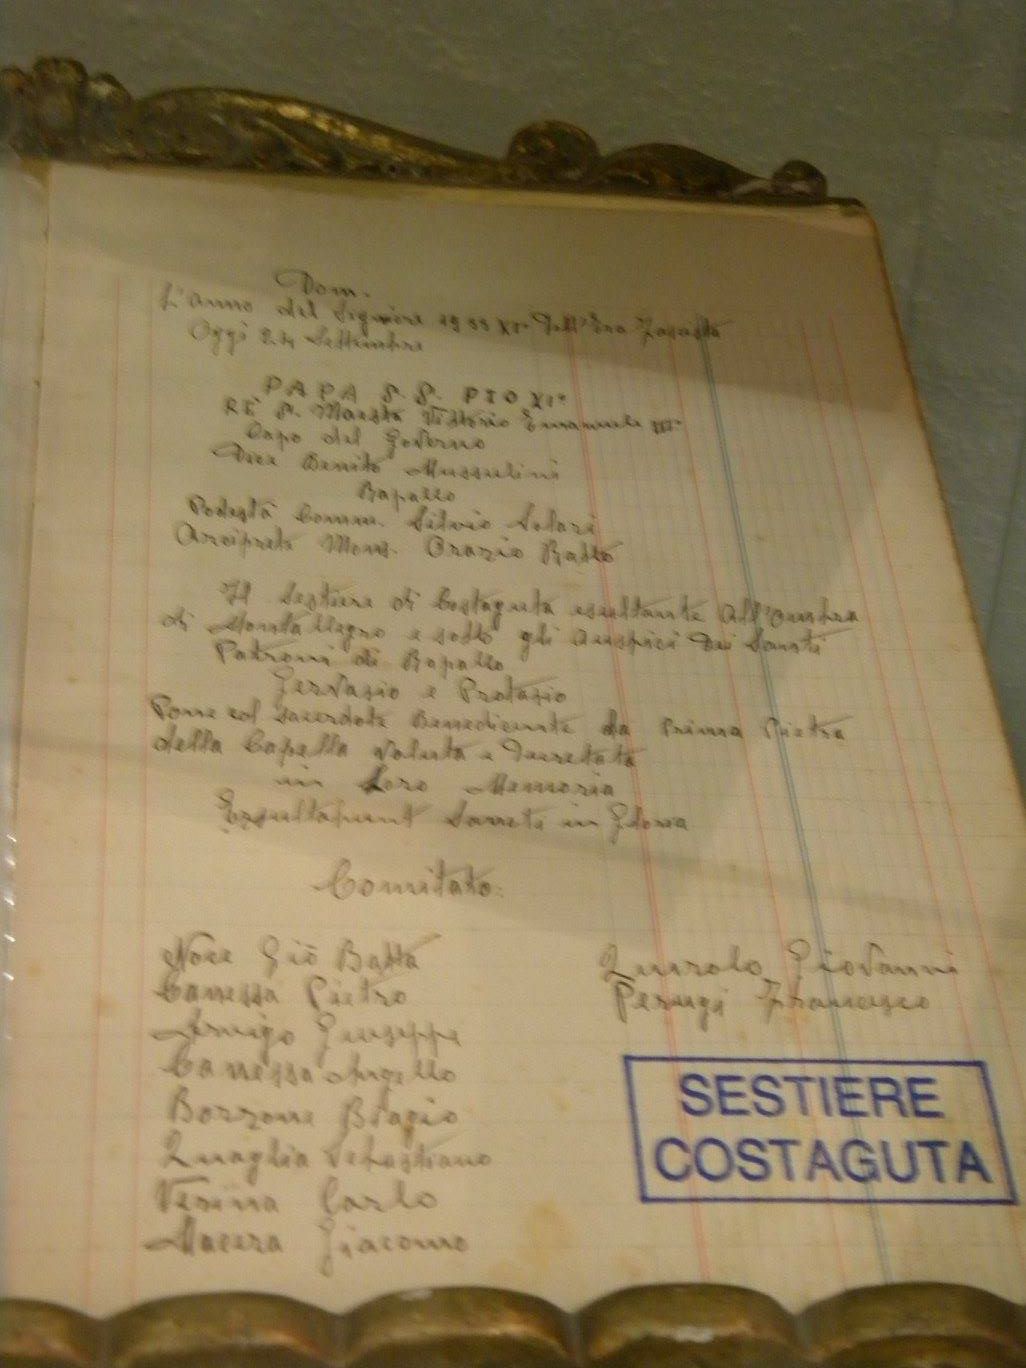 Dom.
L'anno del Signore 1933 XI° Dell'Era Fascista
Oggi 24 Settembre
PAPA S. S. PIO XI°
RE S. Maestà Vittorio Emanuele III°
Capo del Governo
Duce Benito Mussulini
Rapallo
Podestà Comm. Silvio Solari
Arciprete Mons. Orazio
Il Sestiere di Costaguta esultante All'ombra
di Monte Allegro e sotto gli Auspici Dei Santi
Patroni di Rapallo
Gervasio e Protasio
Pone col Sacerdote Benedicente la Prima Pietra
della Capella Voluta e Decretata
in Loro Memoria
Exsultabunt Sancti in Gloria
Comitato:
Noce Giõ Batta
Canessa Pietro
Giuseppe
Canessa Angello
Borzone Biagio
Quaglia Sebastiano
Carlo
Macera Giacomo
Queirolo Giovanni
Perugi Francesco
SESTIERE
COSTAGUTA